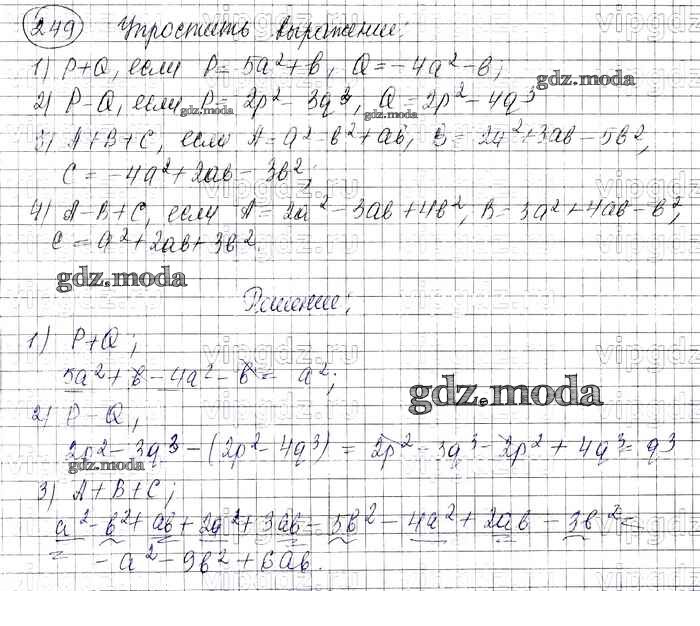 249 Упростить выражение:
1) P+Q, если P=5a²+b, Q=-4a²-b;
gdz.moda
2) P-Q, если P=2p²-3q³, Q=2p²-4q³
gdz.moda gdz.moda
3) A+B+C, если A=a²-b²+ab, B=2a²+3ab-5b²,
C=-4a²+2ab-3b²;
4) A-B+C, если A=2a²-3ab+4b², B=3a²+4ab-b²,
C=a²+2ab+3b².
gdz.moda
Решение;
1) P+Q;
5a²+b-4a²-b=a²;
gdz.moda
2) P-Q;
2p²-3q³-(2p²-4q³)=2p²-3q³-2p²+4q³=q³
gdz.moda
3) A+B+C;
a²-b²+ab+2a²+3ab-5b²-4a²+2ab-3b²=
-a²-9b²+6ab.
vipgdz.ru